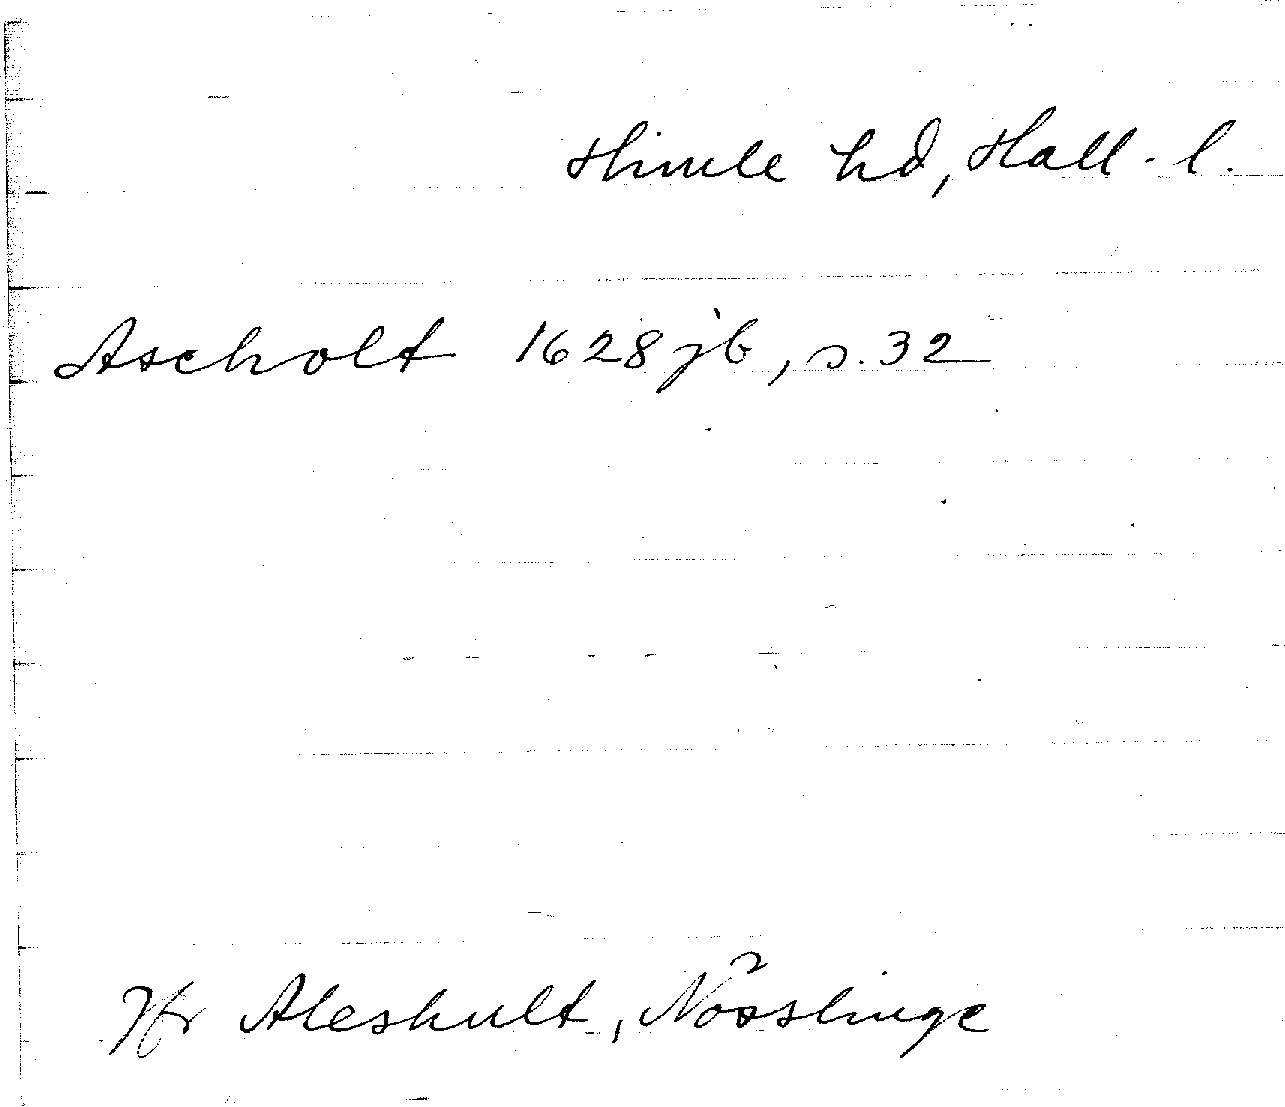 Himle hd, Hall. l.
Ascholt 1628 jb, s. 32
Jfr Aleshult, Nösslinge